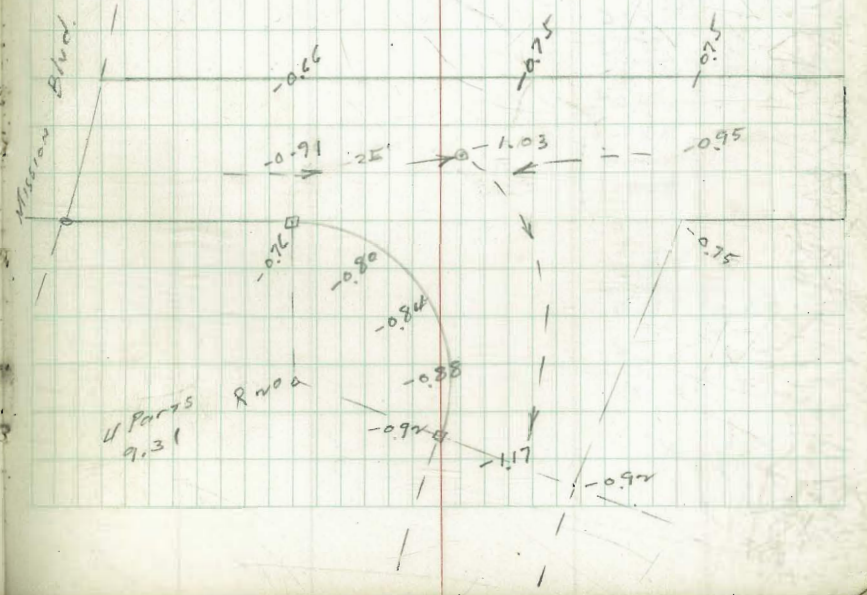 Mission Blvd.
-0.66
-0.75
-0.75
-0.91
25'
-1.03
-0.95
-0.76
-0.75
-0.80
-0.84
-0.88
R 20
4 Parts
9.31
-0.92
-1.17
-0.92